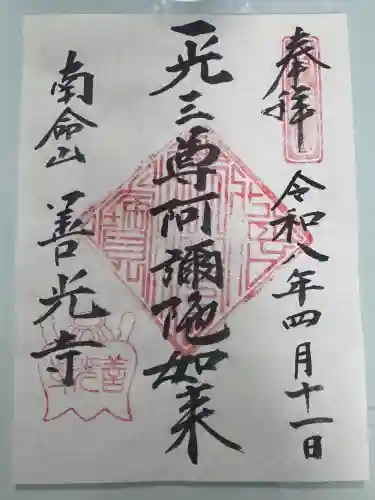 奉拝
令和八年四月十一日
一光三尊阿彌陀如来
南命山
善光寺
善光寺